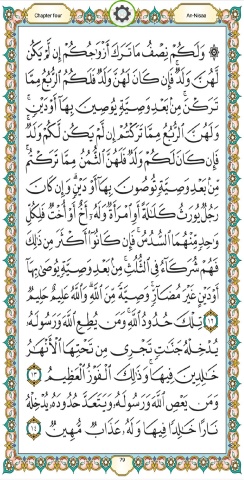 Chapter four
An-Nisaa
۞ وَلَكُمْ نِصْفُ مَا تَرَكَ أَزْوَٰجُكُمْ إِن لَّمْ يَكُن
لَّهُنَّ وَلَدٌ ۚ فَإِن كَانَ لَهُنَّ وَلَدٌ فَلَكُمُ ٱلرُّبُعُ مِمَّا
تَرَكْنَ ۚ مِنۢ بَعْدِ وَصِيَّةٍ يُوصِينَ بِهَآ أَوْ دَيْنٍ ۚ
وَلَهُنَّ ٱلرُّبُعُ مِمَّا تَرَكْتُمْ إِن لَّمْ يَكُن لَّكُمْ وَلَدٌ ۚ
فَإِن كَانَ لَكُمْ وَلَدٌ فَلَهُنَّ ٱلثُّمُنُ مِمَّا تَرَكْتُم ۚ
مِّنۢ بَعْدِ وَصِيَّةٍ تُوصُونَ بِهَآ أَوْ دَيْنٍ ۗ وَإِن كَانَ
رَجُلٌ يُورَثُ كَلَٰلَةً أَوِ ٱمْرَأَةٌ وَلَهُۥٓ أَخٌ أَوْ أُخْتٌ فَلِكُلِّ
وَٰحِدٍ مِّنْهُمَا ٱلسُّدُسُ ۚ فَإِن كَانُوٓا۟ أَكْثَرَ مِن ذَٰلِكَ
فَهُمْ شُرَكَآءُ فِى ٱلثُّلُثِ ۚ مِنۢ بَعْدِ وَصِيَّةٍ يُوصَىٰ بِهَآ
أَوْ دَيْنٍ غَيْرَ مُضَآرٍّ ۚ وَصِيَّةً مِّنَ ٱللَّهِ ۗ وَٱللَّهُ عَلِيمٌ حَلِيمٌ
١٢ تِلْكَ حُدُودُ ٱللَّهِ ۚ وَمَن يُطِعِ ٱللَّهَ وَرَسُولَهُۥ
يُدْخِلْهُ جَنَّٰتٍ تَجْرِى مِن تَحْتِهَا ٱلْأَنْهَٰرُ
خَٰلِدِينَ فِيهَا ۚ وَذَٰلِكَ ٱلْفَوْزُ ٱلْعَظِيمُ ١٣
وَمَن يَعْصِ ٱللَّهَ وَرَسُولَهُۥ وَيَتَعَدَّ حُدُودَهُۥ يُدْخِلْهُ
نَارًا خَٰلِدًا فِيهَا وَلَهُۥ عَذَابٌ مُّهِينٌ ١٤
79